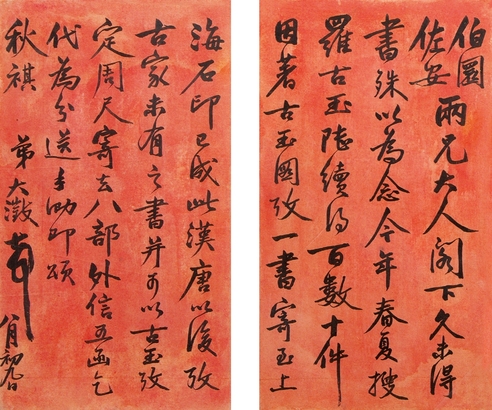 伯圜
佐安
兩兄大人閣下久未得
書殊以為念今年春夏搜
羅古玉陸續得百數十件
因著古玉圖攷一書寄至上
海石印已成此漢唐以後攷
古家未有之書并可以古玉攷
定周尺寄去八部外信五函乞
代為分送手泐即頌
秋祺
弟大澂頓首
八月初九日